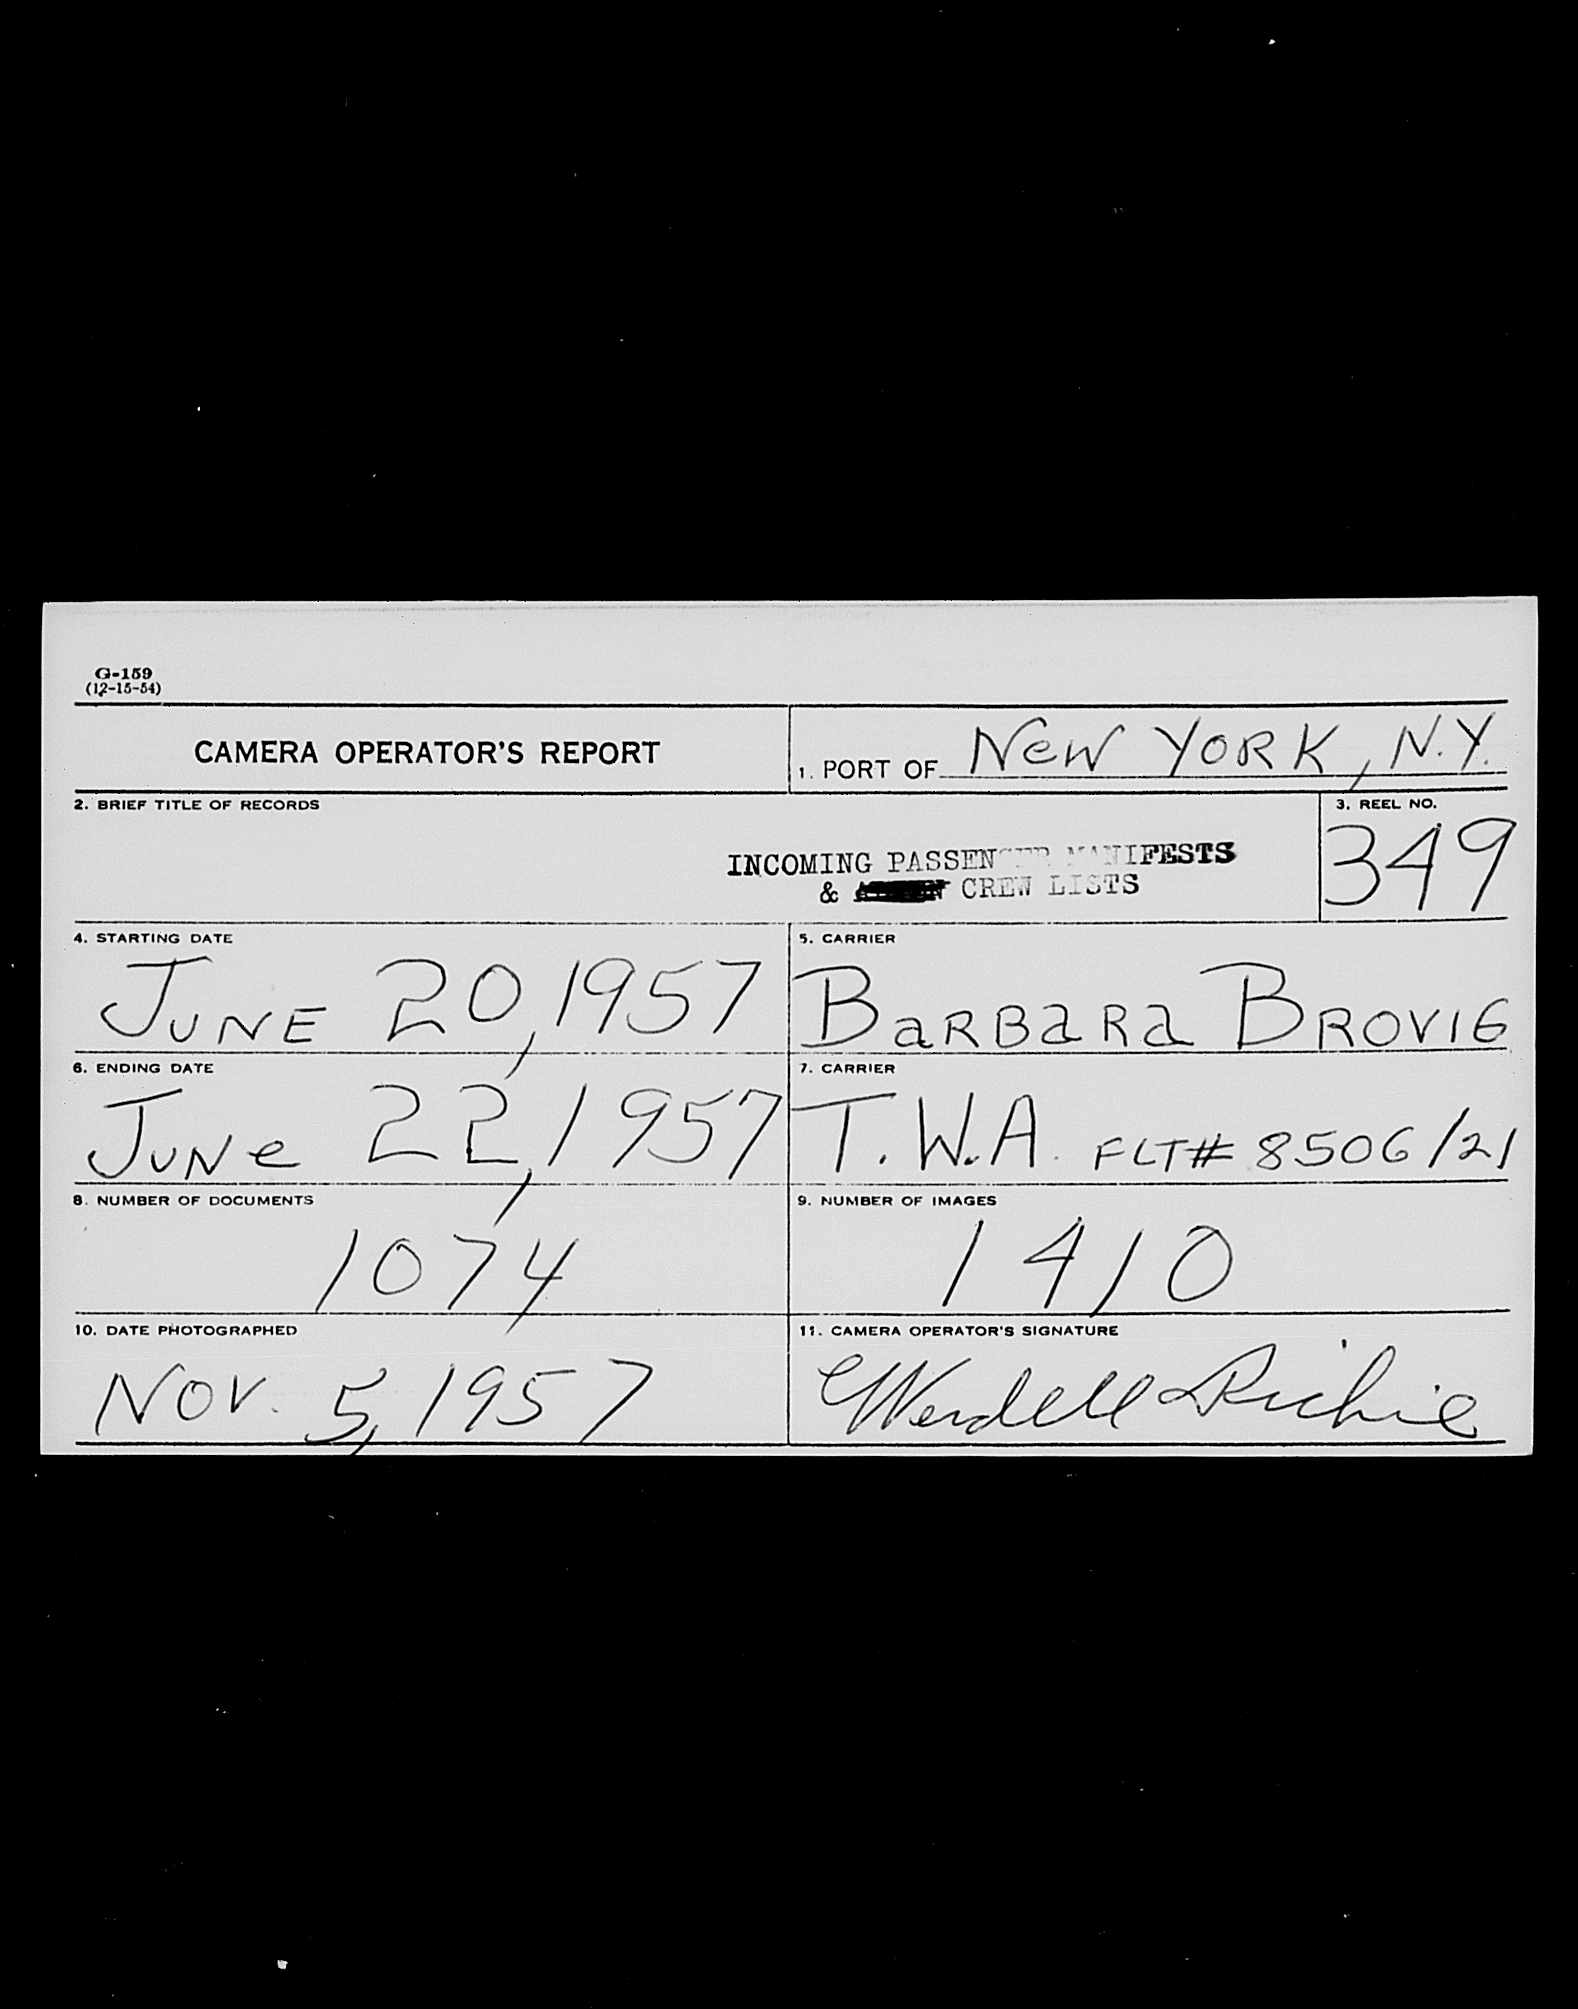 G-159
(12-15-54)
CAMERA OPERATOR'S REPORT
1. PORT OF NeW YORK, N.Y.
2. BRIEF TITLE OF RECORDS
3. REEL NO.
INCOMING PASSENGER MANIFESTS
& CREW LISTS
349
4. STARTING DATE
JUNE 20, 1957
5. CARRIER
BaRBaRa BROVIG
6. ENDING DATE
JUNe 22, 1957
7. CARRIER
T.W.A. FLT# 8506/21
8. NUMBER OF DOCUMENTS
1074
9. NUMBER OF IMAGES
1410
10. DATE PHOTOGRAPHED
NOV. 5, 1957
11. CAMERA OPERATOR'S SIGNATURE
Wendell Richie